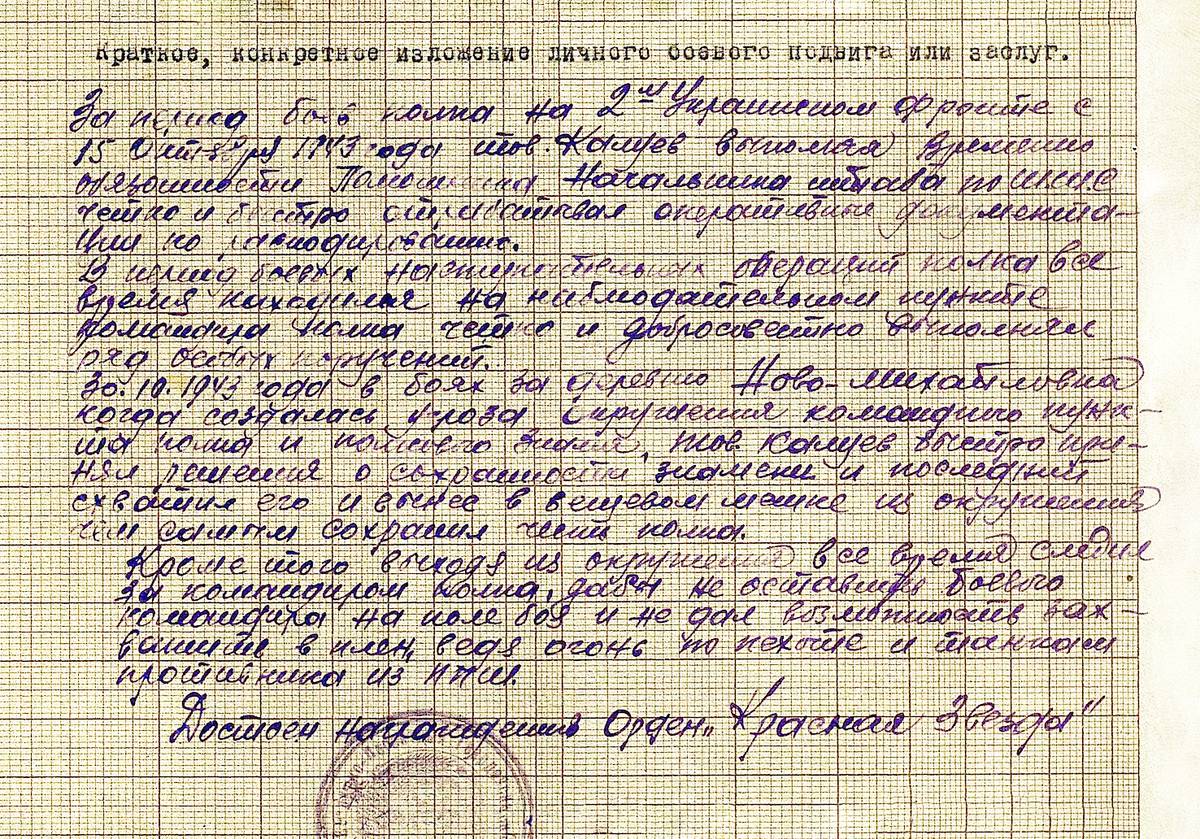 Краткое, конкретное изложение личного боевого подвига или заслуг.
За период боев полка на 2м Украинском фронте с
15 Октября 1943 года тов. Калуев выполняя временно
обязанности Помошника Начальника штаба по
четко и быстро отрабатывал оперативные документа-
ции по
В период боевых наступательных операций полка все
время находился на наблюдательном пункте
командира полка четко и добросовестно выполнял
ряд особых поручений.
30.10.1943 года в боях за деревню Ново-Михайловка
когда создалась угроза окружения командного пунк-
та полка и полкового знамя, тов. Калуев быстро при-
нял решения о сохранности знамени и последний
схватил его и вынес в вещевом мешке из окружения
тем самым сохранил честь полка.
Кроме того выходя из окружения все время следил
за командиром полка, дабы не оставить боевого
командира на поле боя и не дал возможность зах-
ватить в плен, ведя огонь по пехоте и танкам
противника из ПТР.
Достоен награждения Орден „Красная Звезда"